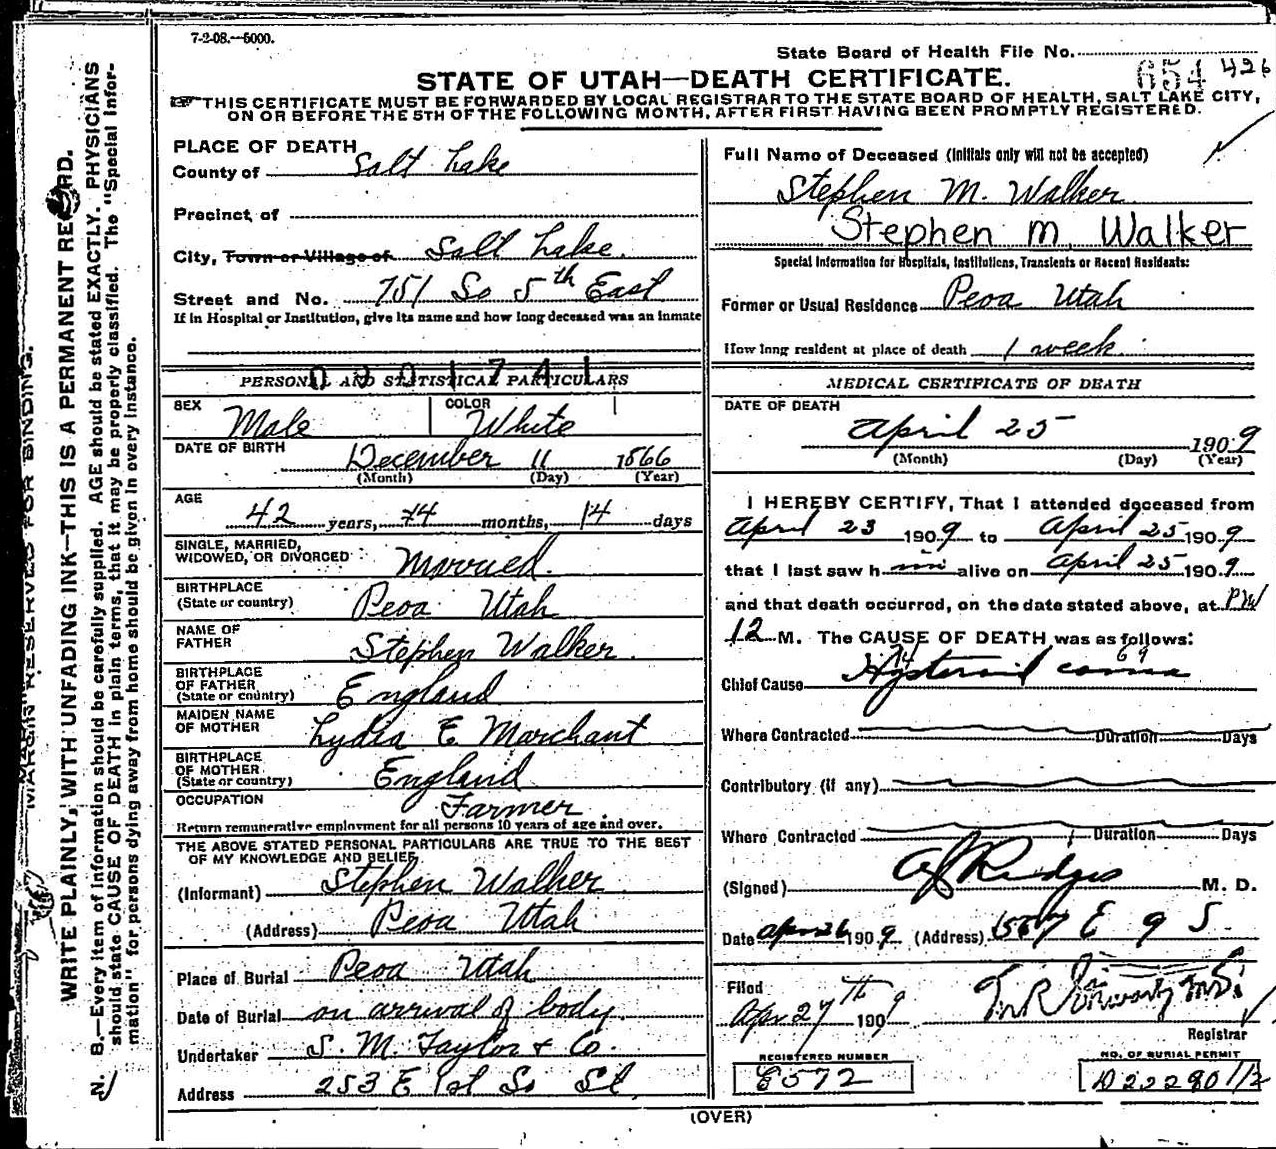 7-2-08.—5000.
State Board of Health File No.
654 426
STATE OF UTAH—DEATH CERTIFICATE.
☞THIS CERTIFICATE MUST BE FORWARDED BY LOCAL REGISTRAR TO THE STATE BOARD OF HEALTH, SALT LAKE CITY,
ON OR BEFORE THE 5TH OF THE FOLLOWING MONTH, AFTER FIRST HAVING BEEN PROMPTLY REGISTERED.
MARGIN RESERVED FOR BINDING.
WRITE PLAINLY, WITH UNFADING INK—THIS IS A PERMANENT RECORD.
N. B.—Every item of information should be carefully supplied. AGE should be stated EXACTLY. PHYSICIANS
should state CAUSE OF DEATH in plain terms, that it may be properly classified. The "Special Infor-
mation" for persons dying away from home should be given in every instance.
PLACE OF DEATH
County of Salt Lake
Precinct of
City, Town or Village of Salt Lake.
Street and No. 751 So 5th East
If in Hospital or Institution, give its name and how long deceased was an inmate
PERSONAL AND STATISTICAL PARTICULARS
SEX Male
COLOR White
DATE OF BIRTH December 11 1866
(Month) (Day) (Year)
AGE
42 years, 4 months, 14 days
SINGLE, MARRIED,
WIDOWED, OR DIVORCED Married.
BIRTHPLACE
(State or country) Peoa Utah
NAME OF
FATHER Stephen Walker.
BIRTHPLACE
OF FATHER
(State or country) England
MAIDEN NAME
OF MOTHER Lydia E Marchant
BIRTHPLACE
OF MOTHER
(State or country) England
OCCUPATION Farmer.
Return remunerative employment for all persons 10 years of age and over.
THE ABOVE STATED PERSONAL PARTICULARS ARE TRUE TO THE BEST
OF MY KNOWLEDGE AND BELIEF,
(Informant) Stephen Walker
(Address) Peoa Utah
Place of Burial Peoa Utah
Date of Burial on arrival of body.
Undertaker S. M. Taylor & Co.
Address 253 E 1st So St
Full Name of Deceased (Initials only will not be accepted)
Stephen M. Walker
Stephen M. Walker
Special Information for Hospitals, Institutions, Transients or Recent Residents:
Former or Usual Residence Peoa Utah
How long resident at place of death 1 week.
MEDICAL CERTIFICATE OF DEATH
DATE OF DEATH
April 25 1909
(Month) (Day) (Year)
I HEREBY CERTIFY, That I attended deceased from
April 23 1909 to April 25 1909
that I last saw him alive on April 25 1909
and that death occurred, on the date stated above, at PM
12 M. The CAUSE OF DEATH was as follows:
74 69
Chief Cause Hysteroid coma
Where Contracted Duration Days
Contributory (if any)
Where Contracted Duration Days
(Signed) M. D.
Date Apr 26 1909 (Address) E 9 S
Filed
Apr 27th 1909
Registrar
REGISTERED NUMBER
NO. OF BURIAL PERMIT
E572
(OVER)